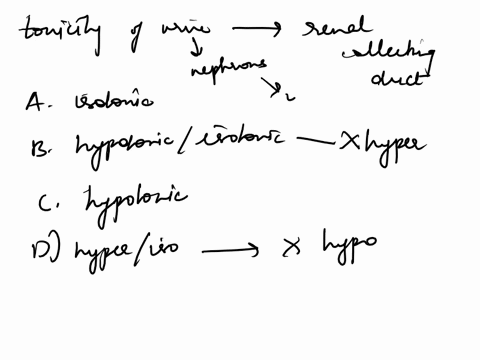 tonicity of urine → renal
collecting
duct
↓
nephrons
↘
A. isotonic
B. hypotonic / isotonic — X hyper
C. hypotonic
D) hyper/iso → X hypo